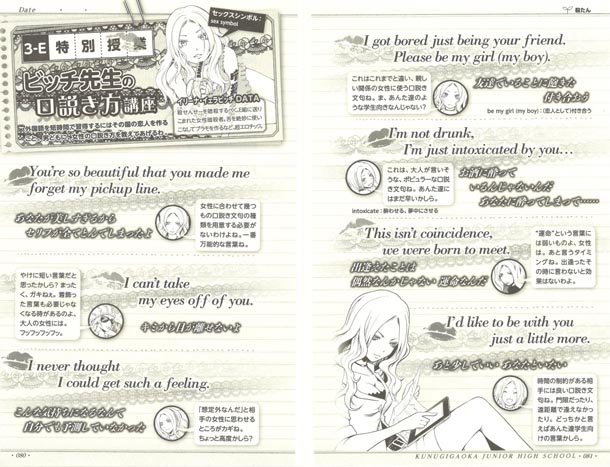 Date ・ ・
セックスシンボル:
sex symbol
3-E 特別授業
ビッチ先生の
口説き方講座
イリーナ・イェラビッチDATA
You're so beautiful that you made me
forget my pickup line.
あなたが美しすぎるから
セリフが全てとんでしまったよ
女性に合わせて幾つ
もの口説き文句の種
類を用意する必要が
ないわけよね。一番
万能的な言葉ね。
やけに短い言葉だと
思ったかしら? まった
く、ガキねぇ。着飾っ
た言葉も必要じゃな
くなる時があるのよ、
大人の女性には。
フッフッフッフッ。
I can't take
my eyes off of you.
キミから目が離せないよ
I never thought
I could get such a feeling.
こんな気持ちになるなんて
自分でも予測していなかった
「想定外なんだ」と相
手の女性に思わせる
ところがカギね。
ちょっと高度かしら?
・080・
殺たん
I got bored just being your friend.
Please be my girl (my boy).
これはこれまでと違い、親し
い関係の女性に使う口説き
文句ね。ま、あんた達のよ
うな学生向きなんじゃない?
友達でいることに飽きた
付き合おう
be my girl (my boy):(恋人として)付き合う
I'm not drunk,
I'm just intoxicated by you…
これは、大人が言いそ
うな、ポピュラーな口説
き文句ね。あんた達に
はまだ早いかしら。
お酒に酔って
いるんじゃないんだ
あなたに酔ってしまって……
intoxicate:酔わせる、夢中にさせる
This isn't coincidence,
we were born to meet.
出逢えたことは
偶然なんかじゃない 運命なんだ
“運命”という言葉に
は弱いものよ、女性
は。あと言うタイミ
ングね。出逢ったそ
の時に言わないと効
果はないわよ。
I'd like to be with you
just a little more.
あと少しでいい あなたといたい
時間の制約がある相
手には良い口説き文
句ね。門限だったり、
遠距離で逢えなかっ
たり。どっちかと言
えばあんた達学生向
けの言葉かしら。
KUNUGIGAOKA JUNIOR HIGH SCHOOL ・081・